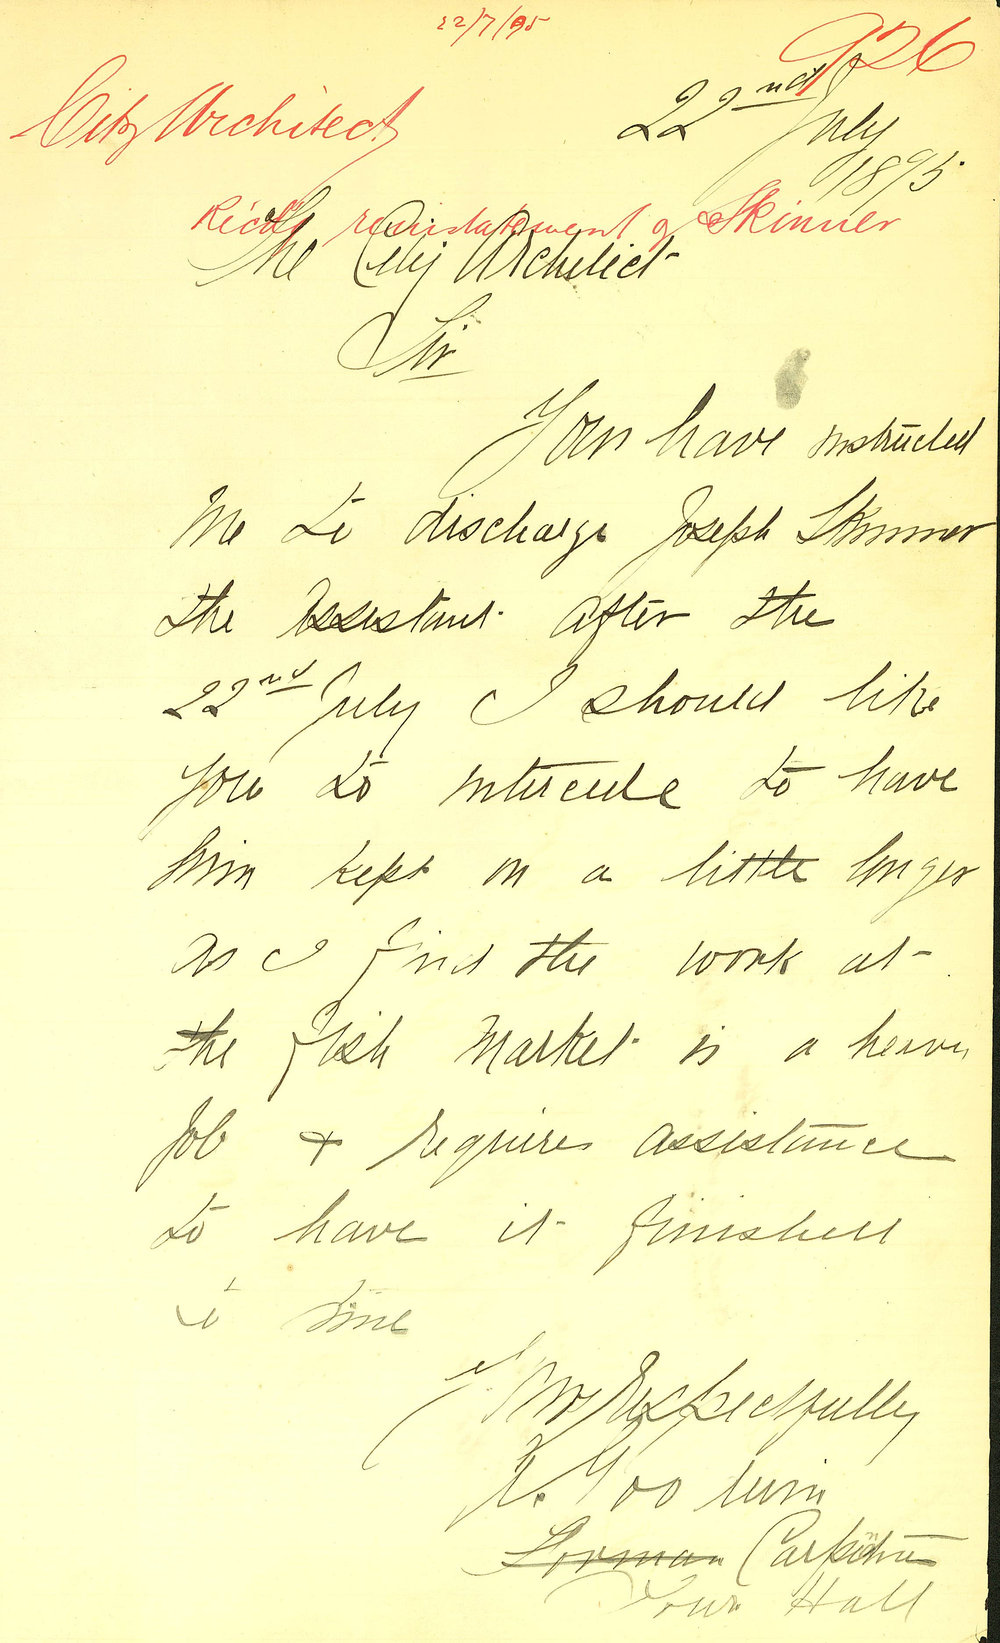 22/7/95
926
City Architect
22nd July
1895
Recds reinstatement of Skinner
The City Architect
Sir
You have instructed
Me to discharge Joseph Skinner
the Assistant after the
22nd July I should like
you to intercede to have
him kept on a little longer
as I find the work at
the Fish Market is a heavy
Job & requires assistance
to have it finished
to time
Yours Respectfully
Goodwin
Forman Carpenter
Town Hall